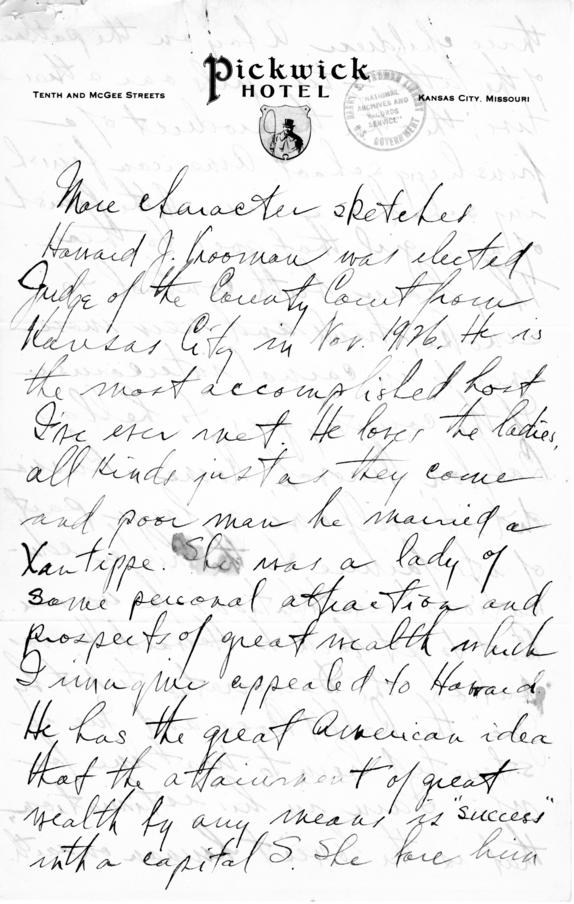 Pickwick
HOTEL
TENTH AND MCGEE STREETS
KANSAS CITY, MISSOURI
HARRY S. TRUMAN LIBRARY
"NATIONAL
ARCHIVES AND
RECORDS
SERVICE"
GOVERNMENT
More character sketches
Howard J. Vrooman was elected
Judge of the County Court from
Kansas City in Nov. 1926. He is
the most accomplished host
I've ever met. He loves the ladies,
all kinds just as they come
and poor man he married a
Xantippe. She was a lady of
some personal attraction and
prospects of great wealth which
I imagine appealed to Howard.
He has the great American idea
that the attainment of great
wealth by any means is "success"
with a capital S. She bore him